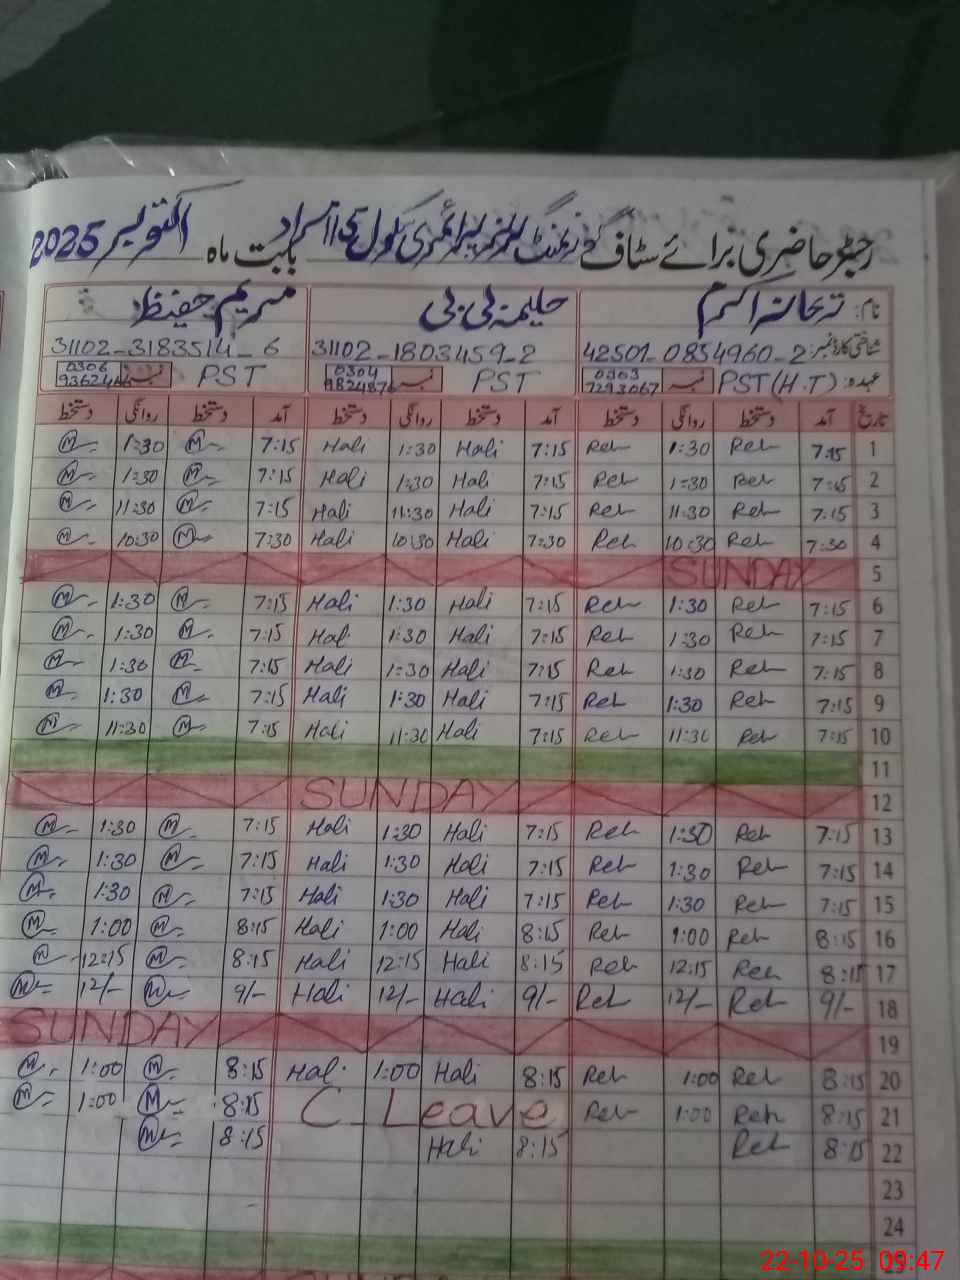 رجسٹر حاضری برائے سٹاف گورنمنٹ گرلز پرائمری سکول بابت ماہ اکتوبر 2025
نام: ریحانہ اکرم حلیمہ بی بی مریم حفیظ
شناختی کارڈ نمبر: 42501-0854960-2 31102-1803459-2 31102-3183514-6
عہدہ: PST (H.T) نمبر 0303 7293067 PST نمبر 0304 9824876 PST نمبر 0306
تاریخ آمد دستخط روانگی دستخط آمد دستخط روانگی دستخط آمد دستخط روانگی دستخط
1 7:15 Reh 1:30 Reh 7:15 Hali 1:30 Hali 7:15 M 1:30 M
2 7:15 Reh 1:30 Reh 7:15 Hali 1:30 Hali 7:15 M 1:30 M
3 7:15 Reh 11:30 Reh 7:15 Hali 11:30 Hali 7:15 M 11:30 M
4 7:30 Reh 10:30 Reh 7:30 Hali 10:30 Hali 7:30 M 10:30 M
5 SUNDAY
6 7:15 Reh 1:30 Reh 7:15 Hali 1:30 Hali 7:15 M 1:30 M
7 7:15 Reh 1:30 Reh 7:15 Hali 1:30 Hal 7:15 M 1:30 M
8 7:15 Reh 1:30 Reh 7:15 Hali 1:30 Hali 7:15 M 1:30 M
9 7:15 Reh 1:30 Reh 7:15 Hali 1:30 Hali 7:15 M 1:30 M
10 7:15 Reh 11:30 Reh 7:15 Hali 11:30 Hali 7:15 M 11:30 M
11
12 SUNDAY
13 7:15 Reh 1:30 Reh 7:15 Hali 1:30 Hali 7:15 M 1:30 M
14 7:15 Reh 1:30 Reh 7:15 Hali 1:30 Hali 7:15 M 1:30 M
15 7:15 Reh 1:30 Reh 7:15 Hali 1:30 Hali 7:15 M 1:30 M
16 8:15 Reh 1:00 Reh 8:15 Hali 1:00 Hali 8:15 M 1:00 M
17 8:15 Reh 12:15 Reh 8:15 Hali 12:15 Hali 8:15 M 12:15 M
18 9/- Reh 12/- Reh 9/- Hali 12/- Hali 9/- M 12/- M
19 SUNDAY
20 8:15 Reh 1:00 Reh 8:15 Hali 1:00 Hal 8:15 M 1:00 M
21 8:15 Reh 1:00 Reh C_Leave 8:15 M 1:00 M
22 8:15 Reh 8:15 Hali 8:15 M
23
24
25
SUNDAY
22-10-25 09:47